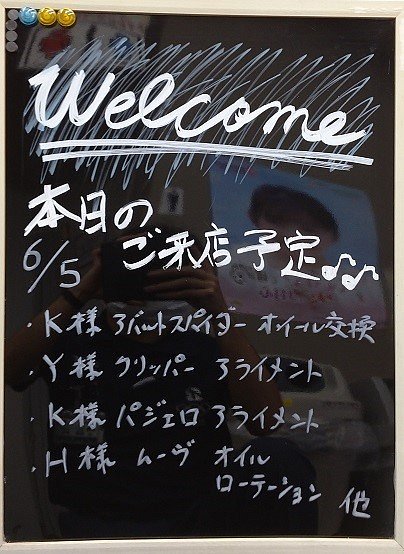 Welcome
本日の
6/5 ご来店予定♪♪
・K様 アバルトスパイダー オイル交換
・Y様 クリッパー アライメント
・K様 パジェロ アライメント
・H様 ムーヴ オイル
ローテーション 他